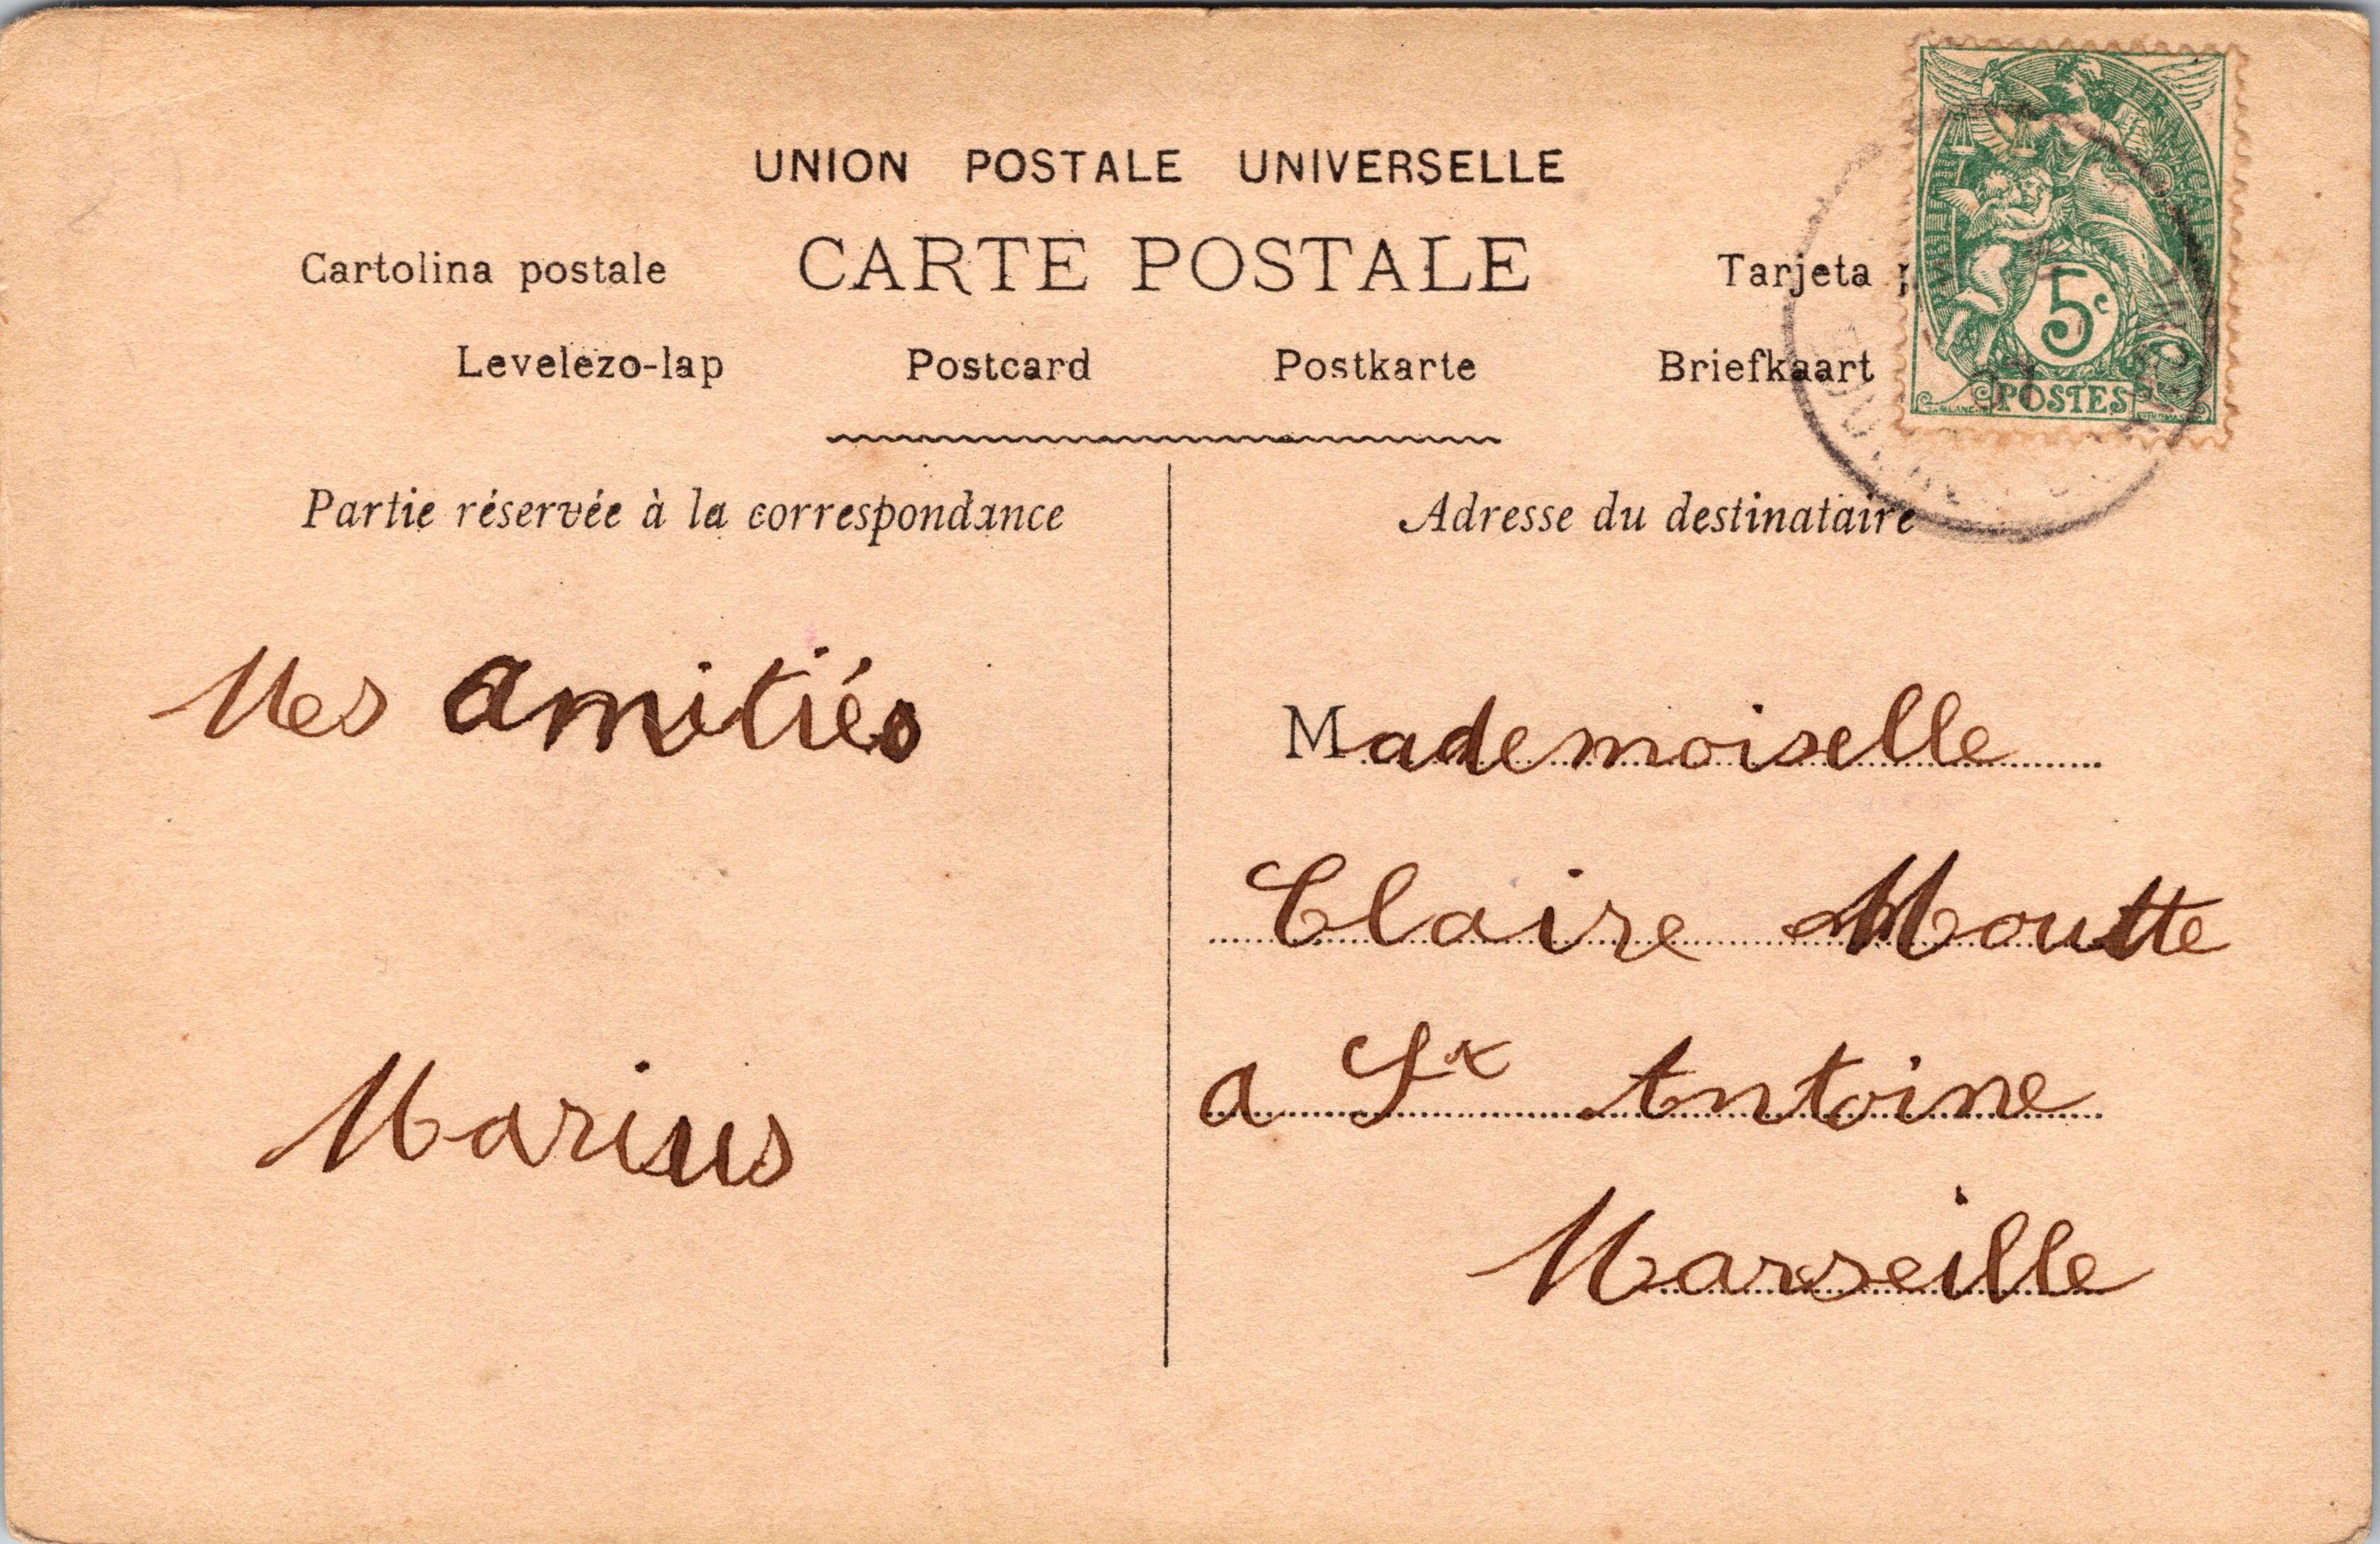 UNION POSTALE UNIVERSELLE
Cartolina postale CARTE POSTALE Tarjeta
Levelezo-lap Postcard Postkarte Briefkaart
5c
POSTES
Partie réservée à la correspondance
Adresse du destinataire
Mes amitiés
Marius
Mademoiselle
Claire Moutte
a St Antoine
Marseille